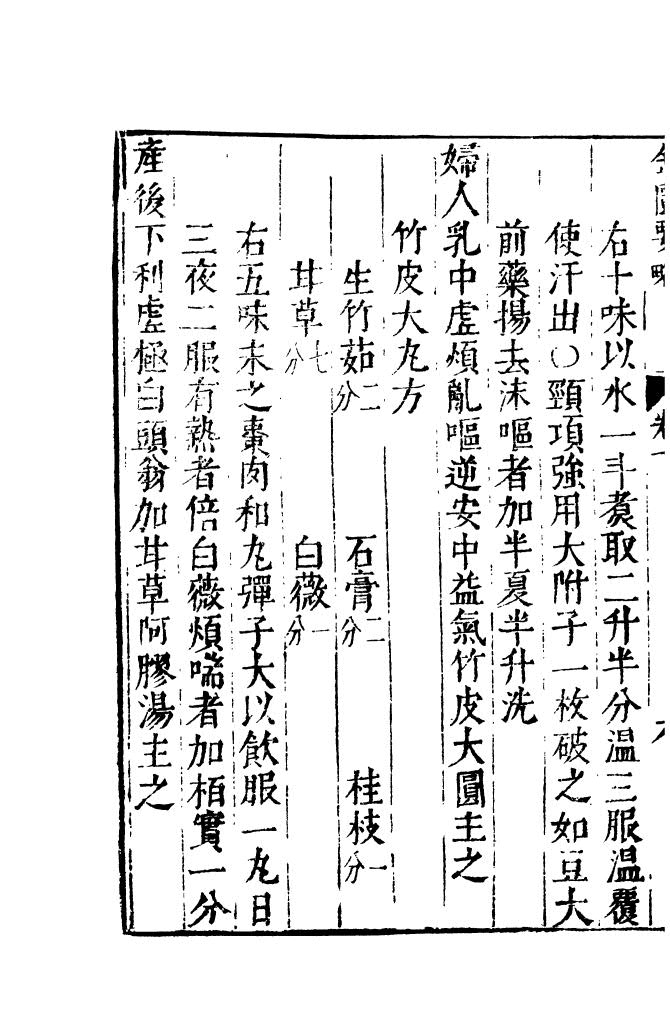 右十味以水一斗煑取二升半分溫三服溫覆
使汗出○頸項強用大附子一枚破之如豆大
前藥揚去沫嘔者加半夏半升洗
婦人乳中虛煩亂嘔逆安中益氣竹皮大圓主之
竹皮大丸方
生竹茹二分 石膏二分 桂枝一分
甘草七分 白薇一分
右五味末之棗肉和丸彈子大以飲服一丸日
三夜二服有熱者倍白薇煩喘者加栢實一分
產後下利虛極白頭翁加甘草阿膠湯主之